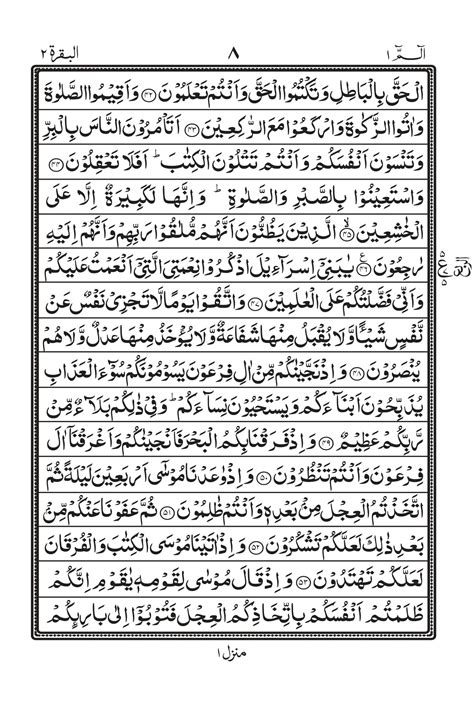 الٓـمّٓ ١ ٨ البقرة ٢
الْحَقَّ بِالْبَاطِلِ وَتَكْتُمُوا الْحَقَّ وَاَنْتُمْ تَعْلَمُوْنَ ﴿۴۲﴾ وَاَقِيْمُوا الصَّلٰوةَ
وَاٰتُوا الزَّكٰوةَ وَارْكَعُوْا مَعَ الرّٰكِعِيْنَ ﴿۴۳﴾ اَتَاْمُرُوْنَ النَّاسَ بِالْبِرِّ
وَتَنْسَوْنَ اَنْفُسَكُمْ وَاَنْتُمْ تَتْلُوْنَ الْكِتٰبَ ؕ اَفَلَا تَعْقِلُوْنَ ﴿۴۴﴾
وَاسْتَعِيْنُوْا بِالصَّبْرِ وَالصَّلٰوةِ ؕ وَاِنَّهَا لَكَبِيْرَةٌ اِلَّا عَلَى
الْخٰشِعِيْنَ ﴿۴۵﴾ الَّذِيْنَ يَظُنُّوْنَ اَنَّهُمْ مُّلٰقُوْا رَبِّهِمْ وَاَنَّهُمْ اِلَيْهِ
رٰجِعُوْنَ ﴿۴۶﴾ يٰبَنِيْٓ اِسْرَآءِيْلَ اذْكُرُوْا نِعْمَتِيَ الَّتِيْٓ اَنْعَمْتُ عَلَيْكُمْ
وَاَنِّيْ فَضَّلْتُكُمْ عَلَى الْعٰلَمِيْنَ ﴿۴۷﴾ وَاتَّقُوْا يَوْمًا لَّا تَجْزِيْ نَفْسٌ عَنْ
نَّفْسٍ شَيْـًٔا وَّلَا يُقْبَلُ مِنْهَا شَفَاعَةٌ وَّلَا يُؤْخَذُ مِنْهَا عَدْلٌ وَّلَا هُمْ
يُنْصَرُوْنَ ﴿۴۸﴾ وَاِذْ نَجَّيْنٰكُمْ مِّنْ اٰلِ فِرْعَوْنَ يَسُوْمُوْنَكُمْ سُوْٓءَ الْعَذَابِ
يُذَبِّحُوْنَ اَبْنَآءَكُمْ وَيَسْتَحْيُوْنَ نِسَآءَكُمْ ؕ وَفِيْ ذٰلِكُمْ بَلَآءٌ مِّنْ
رَّبِّكُمْ عَظِيْمٌ ﴿۴۹﴾ وَاِذْ فَرَقْنَا بِكُمُ الْبَحْرَ فَاَنْجَيْنٰكُمْ وَاَغْرَقْنَآ اٰلَ
فِرْعَوْنَ وَاَنْتُمْ تَنْظُرُوْنَ ﴿۵۰﴾ وَاِذْ وٰعَدْنَا مُوْسٰٓى اَرْبَعِيْنَ لَيْلَةً ثُمَّ
اتَّخَذْتُمُ الْعِجْلَ مِنْۢ بَعْدِهٖ وَاَنْتُمْ ظٰلِمُوْنَ ﴿۵۱﴾ ثُمَّ عَفَوْنَا عَنْكُمْ مِّنْۢ
بَعْدِ ذٰلِكَ لَعَلَّكُمْ تَشْكُرُوْنَ ﴿۵۲﴾ وَاِذْ اٰتَيْنَا مُوْسَى الْكِتٰبَ وَالْفُرْقَانَ
لَعَلَّكُمْ تَهْتَدُوْنَ ﴿۵۳﴾ وَاِذْ قَالَ مُوْسٰى لِقَوْمِهٖ يٰقَوْمِ اِنَّكُمْ
ظَلَمْتُمْ اَنْفُسَكُمْ بِاتِّخَاذِكُمُ الْعِجْلَ فَتُوْبُوْٓا اِلٰى بَارِىِٕكُمْ
منزل ١